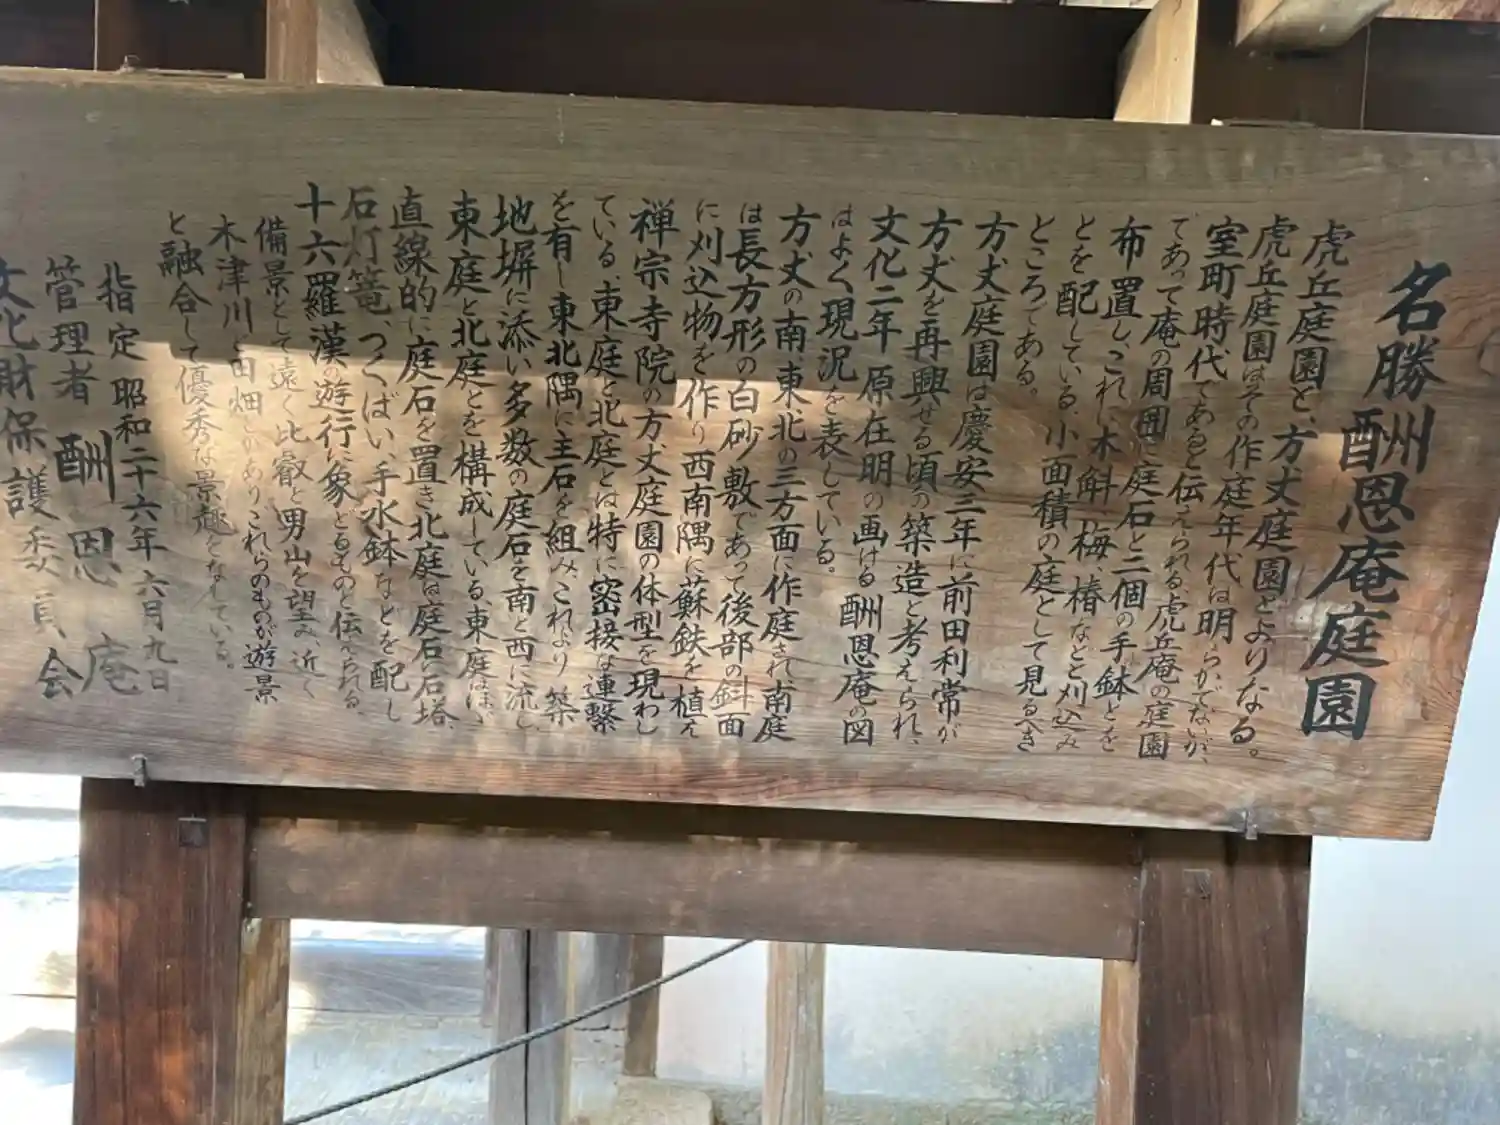 名勝 酬恩庵庭園
虎丘庭園と、方丈庭園とよりなる。
虎丘庭園はその作庭年代は明らかでないが、
室町時代であると伝えられる、虎丘庵の庭園
であって庵の周囲に庭石と二個の手鉢とを
布置し、これに木斛、梅、椿などと刈込み
とを配している、小面積の庭として見るべき
ところである。
方丈庭園は慶安三年に前田利常が
方丈を再興せる頃の築造と考えられ、
文化二年原在明の画ける酬恩庵の図
はよく現況を表している。
方丈の南、東、北の三方面に作庭され南庭
は長方形の白砂敷であって後部の斜面
に刈込物を作り西南隅に蘇鉄を植え
禅宗寺院の方丈庭園の体型を現わし
ている、東庭と北庭とは特に密接な連繋
を有し東北隅に主石を組み、これより築
地塀に添い多数の庭石を南と西に流し、
東庭と北庭とを構成している、東庭はほゞ
直線的に庭石を置き北庭は庭石と石塔、
石灯篭、つくばい、手水鉢などを配し
十六羅漢の遊行に象どるものと伝えられる、
備景として遠く比叡と男山を望み近く
木津川と田畑とがありこれらのものが遊景
と融合して優秀な景趣となしている。
指定 昭和二十六年六月九日
管理者 酬恩庵
文化財保護委員会